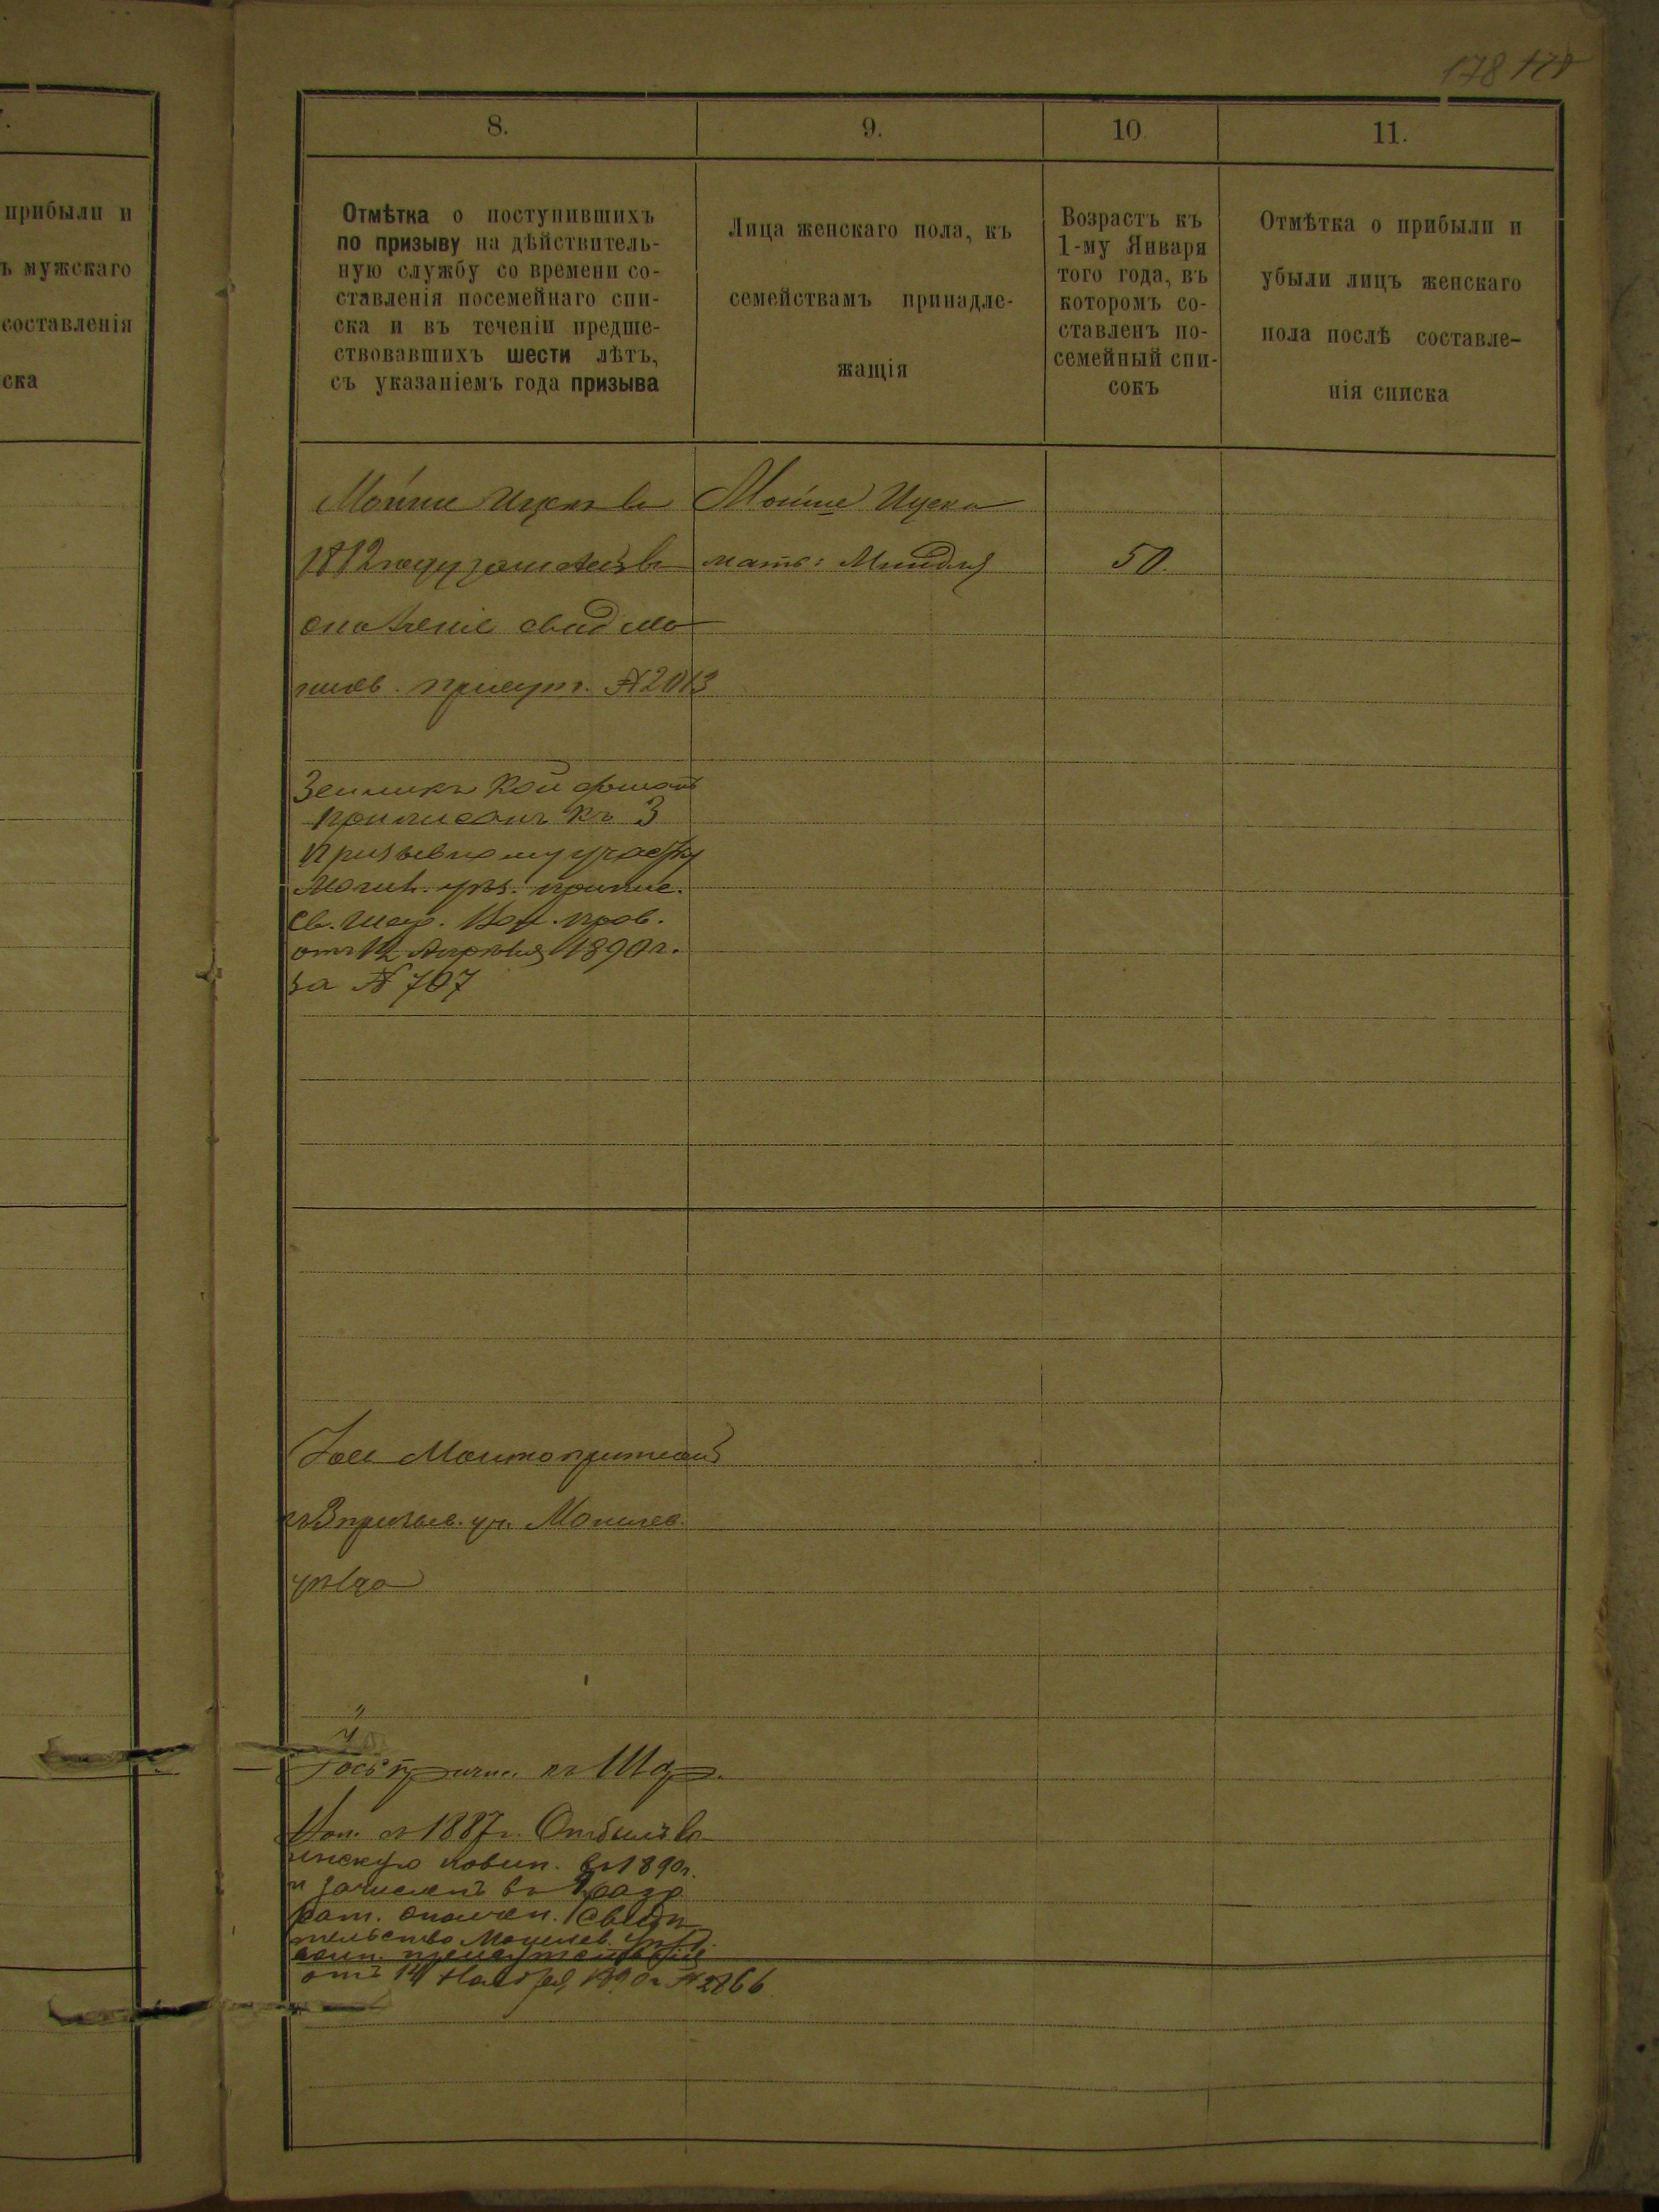 178 178
прибыли и
ъ мужскаго
составленія
ска
8.
9.
10.
11.
Отмѣтка о поступившихъ
по призыву на дѣйствитель-
ную службу со времени со-
ставленія посемейнаго спи-
ска и въ теченіи предше-
ствовавшихъ шести лѣтъ,
съ указаніемъ года призыва
Лица женскаго пола, къ
семействамъ принадле-
жащія
Возрастъ къ
1-му Января
того года, въ
которомъ со-
ставленъ по-
семейный спи-
сокъ
Отмѣтка о прибыли и
убыли лицъ женскаго
пола послѣ составле-
нія списка
Мойше Ицекъ въ
году
ополченіе свид Мо
гилев. присут. № 2013
Мойше Ицека
мать: Миндля
50.
приписанъ къ 3
призывному участку
Могил. уѣз. припис.
св. Шар. Вол. прав.
отъ 12 Апрѣля 1890 г.
за № 707
къ 3 призыв. уч. Могилев.
уѣзда
Іось припис. къ Шар.
Вол. въ 1887 г. Отбылъ во
инскую повин. въ 1890 г.
и зачисленъ въ разр
рат. ополчен. Свидѣ
тельство Могилев. уѣзд.
воин. присутствія
отъ 14 Ноября 1890 г. № 2866